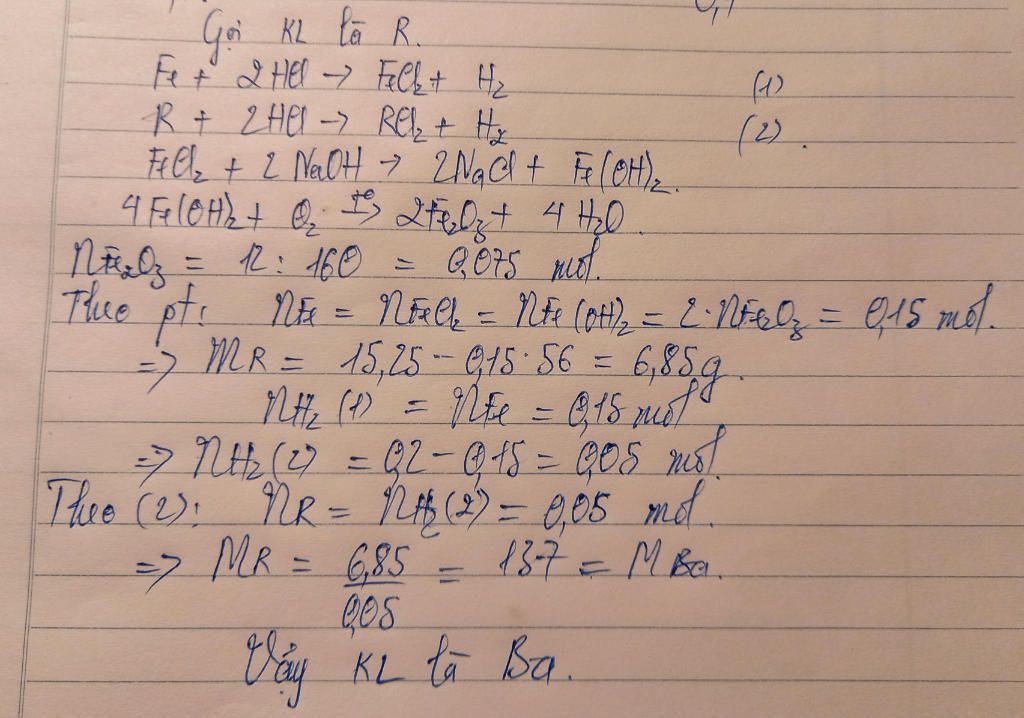 Gọi KL là R.
Fe + 2HCl → FeCl₂ + H₂ (1)
R + 2HCl → RCl₂ + H₂ (2).
FeCl₂ + 2NaOH → 2NaCl + Fe(OH)₂.
4Fe(OH)₂ + O₂ →(t°) 2Fe₂O₃ + 4H₂O.
nFe₂O₃ = 12 : 160 = 0,075 mol.
Theo pt: nFe = nFeCl₂ = nFe(OH)₂ = 2·nFe₂O₃ = 0,15 mol.
=> MR = 15,25 - 0,15·56 = 6,85g.
nH₂ (1) = nFe = 0,15 mol
=> nH₂(2) = 0,2 - 0,15 = 0,05 mol.
Theo (2): nR = nH₂(2) = 0,05 mol.
=> MR = 6,85/0,05 = 137 = MBa.
Vậy KL là Ba.